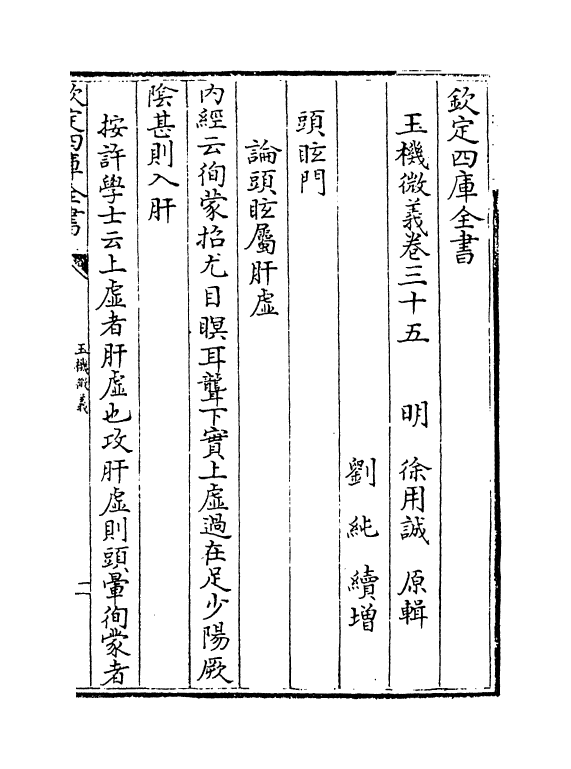 欽定四庫全書
玉機微義卷三十五 明 徐用誠 原輯
劉純 續增
頭眩門
論頭眩屬肝虛
内經云徇蒙招尤目瞑耳聾下實上虛過在足少陽厥
陰甚則入肝
按許學士云上虛者肝虛也攻肝虛則頭暈徇蒙者
欽定四庫全書
玉機微義
二